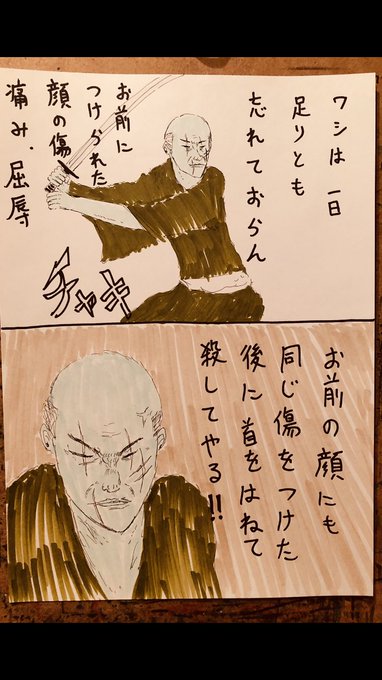 ワシは一日
足りとも
忘れておらん
お前に
つけられた
顔の傷
痛み・屈辱
チャキ
お前の顔にも
同じ傷をつけた
後に首をはねて
殺してやる!!